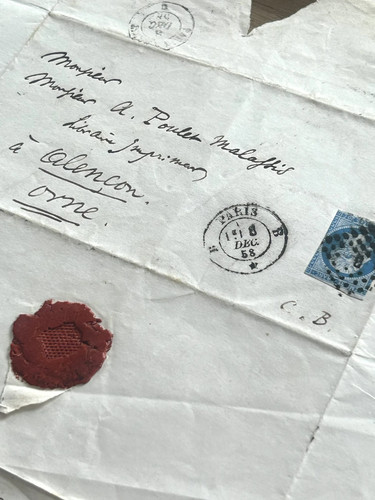 DEC
Monsieur
Monsieur A. Poulet Malassis
libraire Imprimeur
à Alençon.
Orne.
PARIS
B B
DEC.
58
C. B.